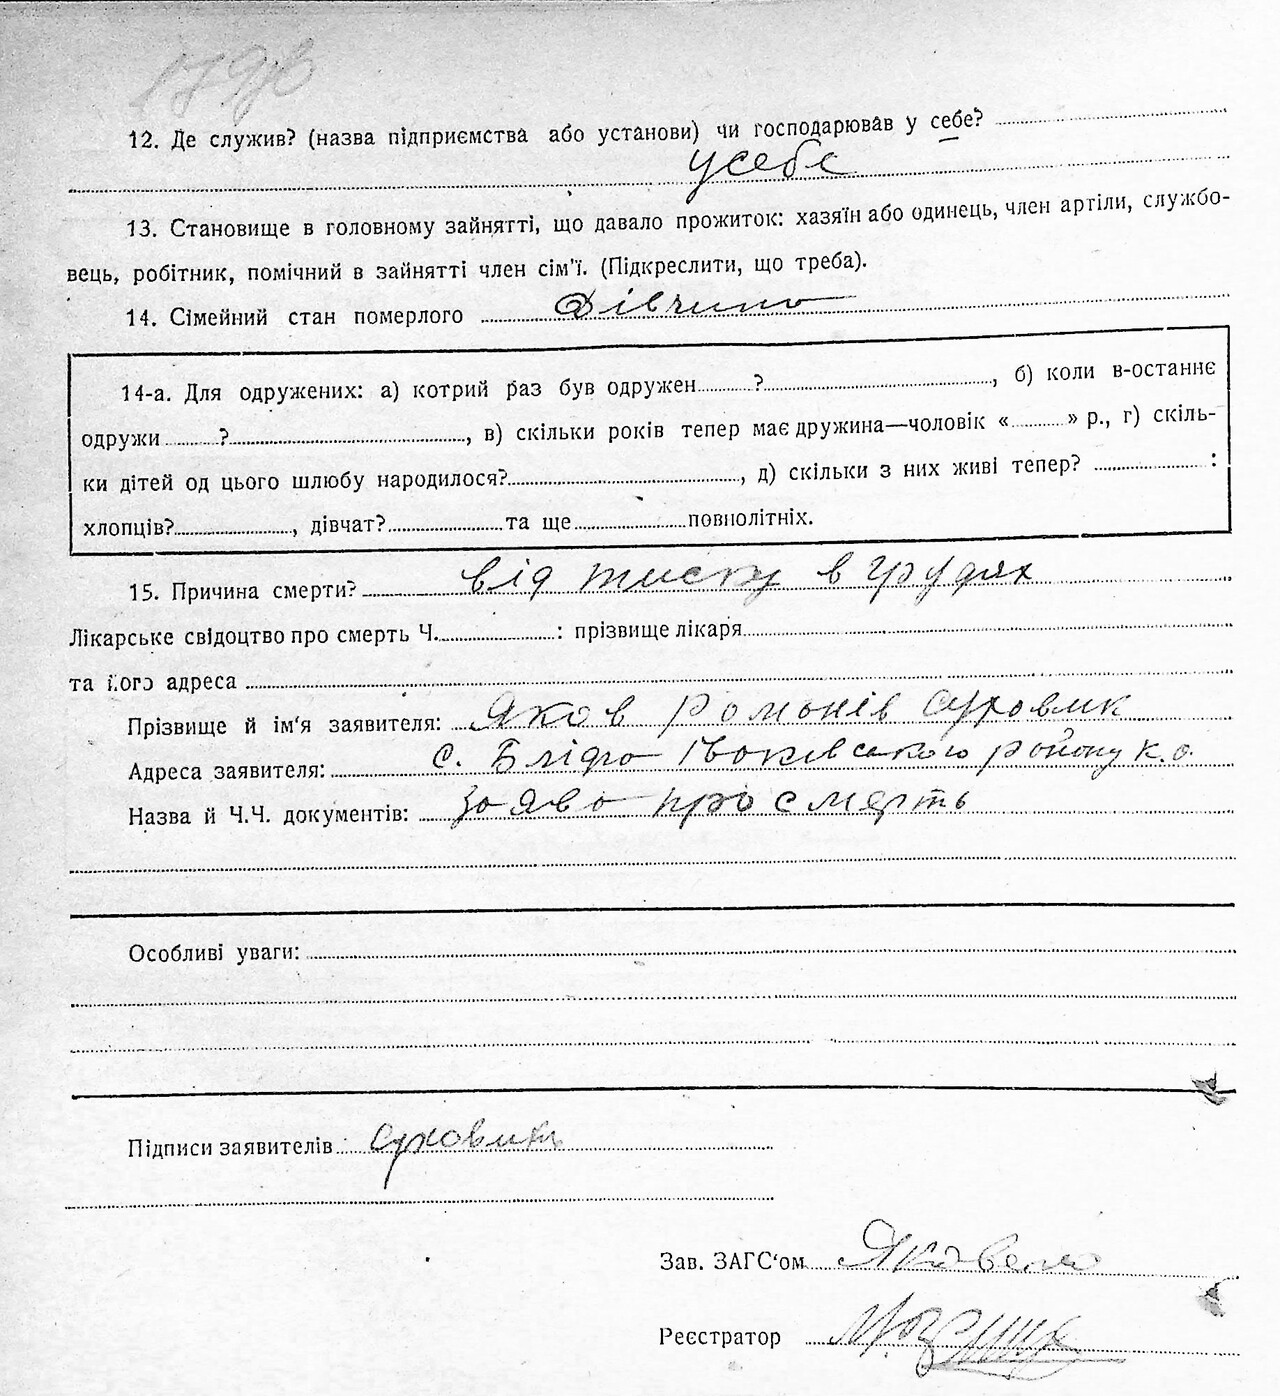 12. Де служив? (назва підприємства або установи) чи господарював у себе?
у себе
13. Становище в головному зайнятті, що давало прожиток: хазяїн або одинець, член артіли, службо-
вець, робітник, помічний в зайнятті член сім'ї. (Підкреслити, що треба).
14. Сімейний стан померлого дівчина
14-а. Для одружених: а) котрий раз був одружен ? , б) коли в-останнє
одружи ? , в) скільки років тепер має дружина—чоловік « » р., г) скіль-
ки дітей од цього шлюбу народилося? , д) скільки з них живі тепер? :
хлопців? , дівчат? та ще повнолітніх.
15. Причина смерти? від тиску в грудях
Лікарське свідоцтво про смерть Ч. : прізвище лікаря
та його адреса
Прізвище й ім'я заявителя: Яков Романів Суховик
Адреса заявителя: с. району к.о.
Назва й Ч.Ч. документів: заява про смерть
Особливі уваги:
Підписи заявителів Суховик
Зав. ЗАГС'ом
Реєстратор